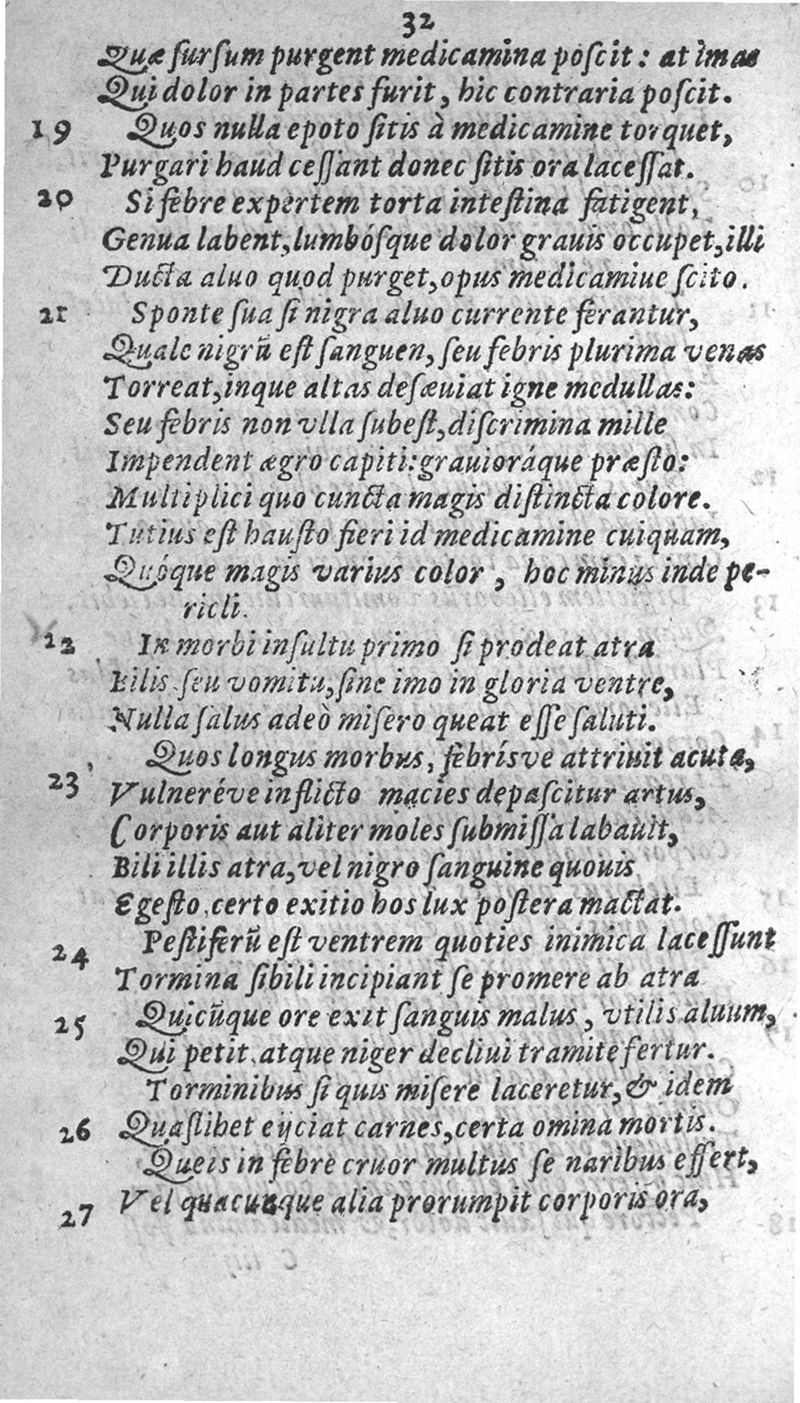 32
Quæ ſurſum purgent medicamina poſcit: at imas
Qui dolor in partes furit, hic contraria poſcit.
19 Quos nulla epoto ſitis à medicamine torquet,
Purgari haud ceſſant donec ſitis ora laceſſat.
20 Si febre expertem torta inteſtina fatigent,
Genua labent, lumbóſque dolor grauis occupet, illi
Ducta aluo quod purget, opus medicamiue ſcito.
21 Sponte ſua ſi nigra aluo currente ferantur,
Quale nigrũ eſt ſanguen, ſeu febris plurima venas
Torreat, inque altas deſæuiat igne medullas:
Seu febris non vlla ſubeſt, diſcrimina mille
Impendent ægro capiti: grauioráque præſto:
Multiplici quo cuncta magis diſtincta colore.
Tutius eſt hauſto fieri id medicamine cuiquam,
Quóque magis varius color, hoc minus inde pe-
ricli.
22 In morbi inſultu primo ſi prodeat atra
Bilis ſeu vomitu, ſine imo in gloria ventre,
Nulla ſalus adeò miſero queat eſſe ſaluti.
Quos longus morbus, febrísve attriuit acuta,
23 Vulneréve inflicto macies depaſcitur artus,
Corporis aut aliter moles ſubmiſſa labauit,
Bili illis atra, vel nigro ſanguine quouis
Egeſto, certo exitio hos lux poſtera mactat.
24 Peſtiferũ eſt ventrem quoties inimica laceſſunt
Tormina ſibili incipiant ſe promere ab atra
25 Quicũque ore exit ſanguis malus, vtilis aluum,
Qui petit, atque niger decliui tramite fertur.
Torminibus ſi quis miſere laceretur, & idem
26 Quaſlibet eijciat carnes, certa omina mortis.
Queis in febre cruor multus ſe naribus effert,
27 Vel quacunque alia prorumpit corporis ora,